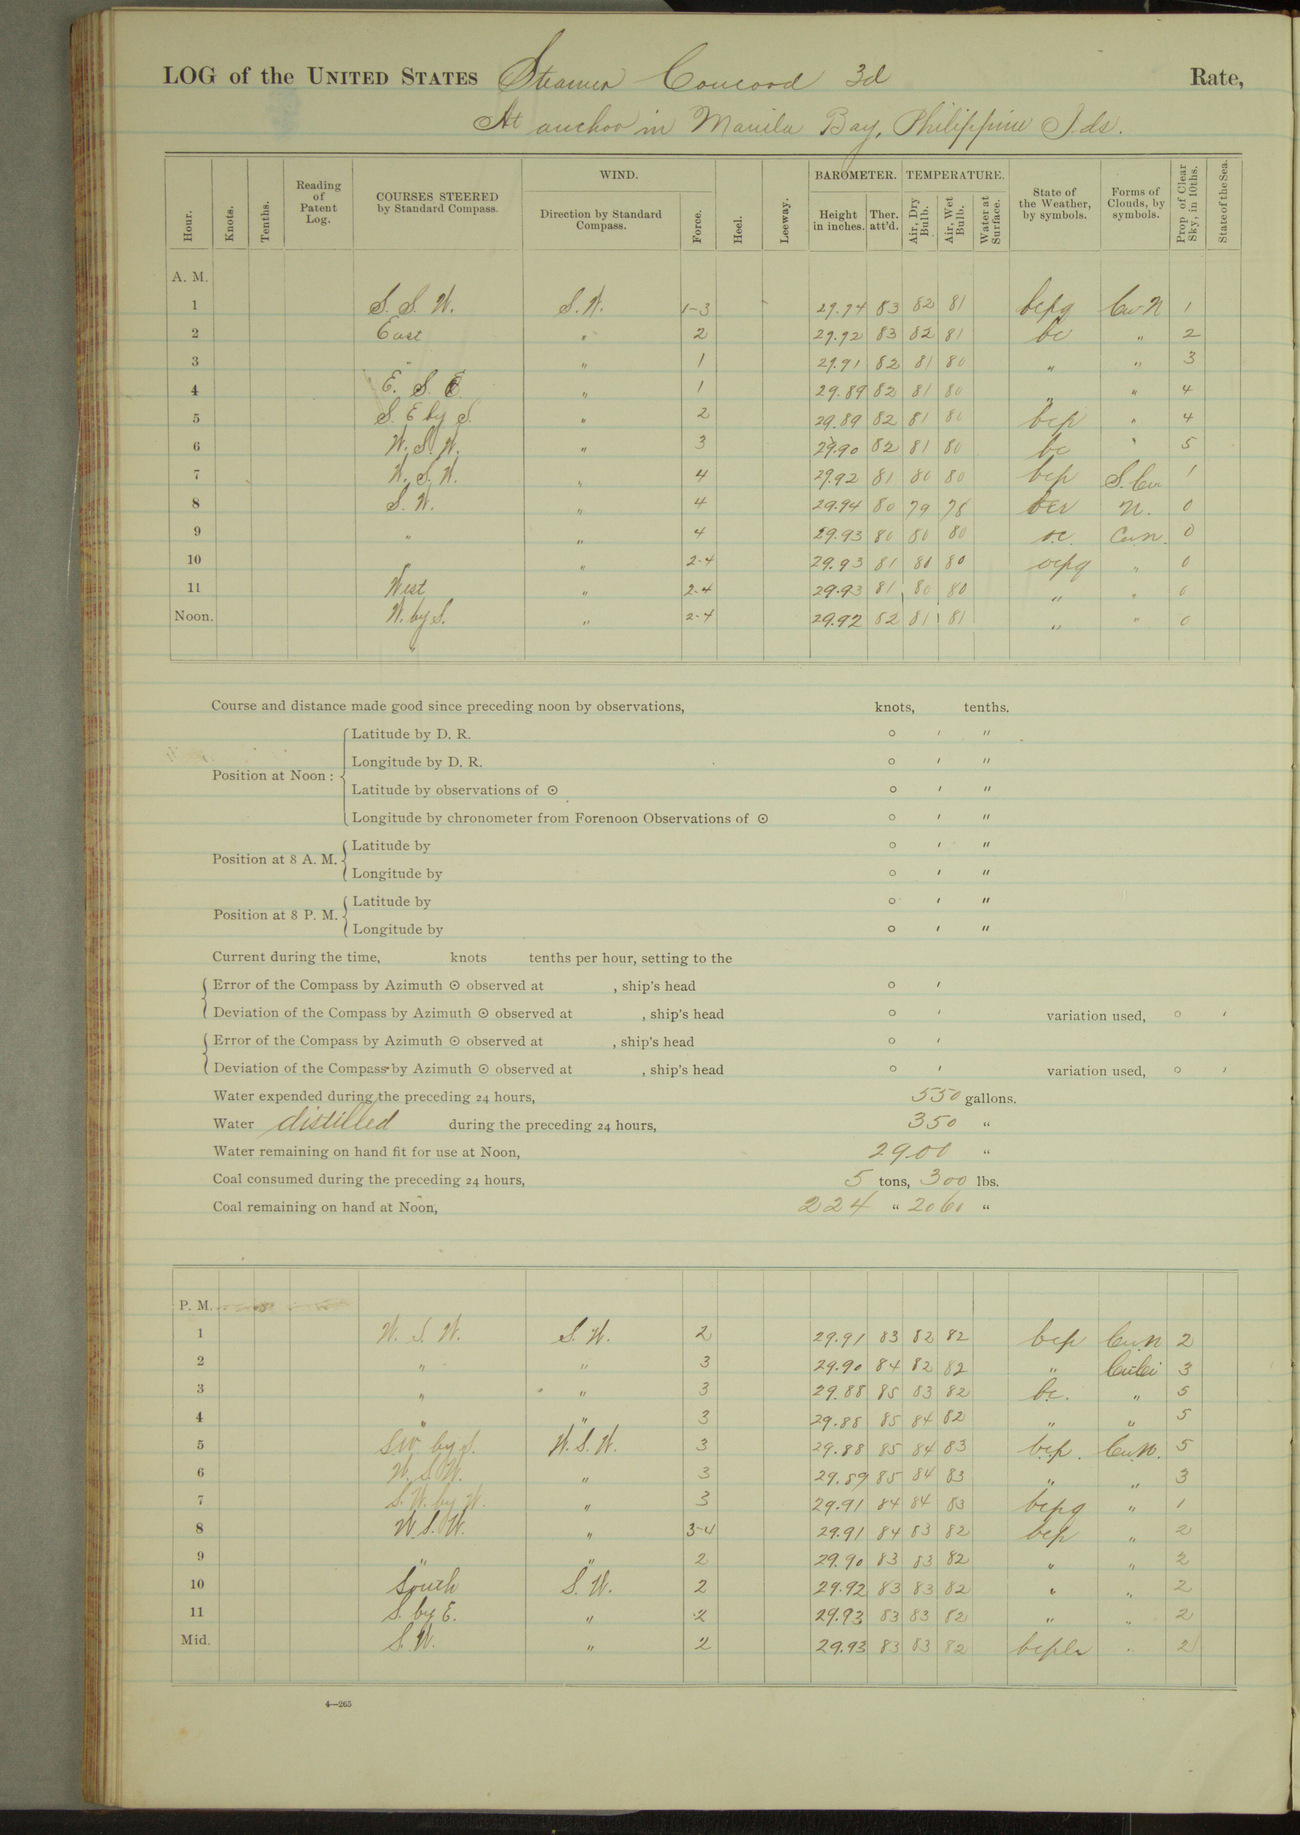 LOG of the UNITED STATES Steamer Concord 3d Rate,
At anchor in Manila Bay, Philippine Ids.
Hour. Knots. Tenths. Reading of Patent Log. COURSES STEERED by Standard Compass. WIND. Direction by Standard Compass. Force. Heel. Leeway. BAROMETER. Height in inches. Ther. att'd. TEMPERATURE. Air, Dry Bulb. Air, Wet Bulb. Water at Surface. State of the Weather, by symbols. Forms of Clouds, by symbols. Prop of Clear Sky, in 10ths. State of the Sea.
A. M.
1 S. S. W. S. W. 1-3 29.94 83 82 81 bcpq Cu N 1
2 East " 2 29.92 83 82 81 bc " 2
3 " " 1 29.91 82 81 80 " " 3
4 E. S. E. " 1 29.89 82 81 80 " " 4
5 S. E by S. " 2 29.89 82 81 80 bcp " 4
6 W. S. W. " 3 29.90 82 81 80 bc " 5
7 W. S. W. " 4 29.92 81 80 80 bcp S. Cu 1
8 S. W. " 4 29.94 80 79 78 bcr N. 0
9 " " 4 29.93 80 80 80 o.c. Cu.N. 0
10 " 2-4 29.93 81 80 80 ocpq " 0
11 West " 2-4 29.93 81 80 80 " " 0
Noon. W. by S. " 2-4 29.92 82 81 81 " " 0
"
Course and distance made good since preceding noon by observations, knots, tenths.
Position at Noon: Latitude by D. R. ° ' "
Longitude by D. R. ° ' "
Latitude by observations of ☉ ° ' "
Longitude by chronometer from Forenoon Observations of ☉ ° ' "
Position at 8 A. M. Latitude by ° ' "
Longitude by ° ' "
Position at 8 P. M. Latitude by ° ' "
Longitude by ° ' "
Current during the time, knots tenths per hour, setting to the
Error of the Compass by Azimuth ☉ observed at , ship's head ° '
Deviation of the Compass by Azimuth ☉ observed at , ship's head ° ' variation used, ° '
Error of the Compass by Azimuth ☉ observed at , ship's head ° '
Deviation of the Compass by Azimuth ☉ observed at , ship's head ° ' variation used, ° '
Water expended during the preceding 24 hours, 550 gallons.
Water distilled during the preceding 24 hours, 350 "
Water remaining on hand fit for use at Noon, 2900 "
Coal consumed during the preceding 24 hours, 5 tons, 300 lbs.
Coal remaining on hand at Noon, 224 " 2060 "
P. M.
1 W. S. W. S. W. 2 29.91 83 82 82 bcp Cu.N 2
2 " " 3 29.90 84 82 82 " 3
3 " " 3 29.88 85 83 82 bc. " 5
4 " " 3 29.88 85 84 82 " " 5
5 SW by S. W. S. W. 3 29.88 85 84 83 bcp. Cu.N. 5
6 W. S. W. " 3 29.89 85 84 83 " " 3
7 S. W. by W. " 3 29.91 84 84 83 bcpq " 1
8 W S. W. " 3-4 29.91 84 83 82 bcp " 2
9 " " 2 29.90 83 83 82 " " 2
10 South S. W. 2 29.92 83 83 82 " " 2
11 S. by E. " 2 29.93 83 83 82 " " 2
Mid. S. W. " 2 29.93 83 83 82 " 2
4—265